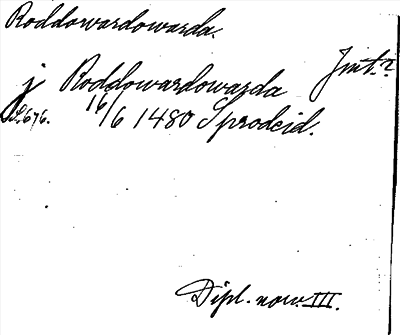 Roddowardowarda.
Jmt.?
j Roddowardowarda
S.676. 16/6 1480 Sprodeid.
Dipl. norv. III.